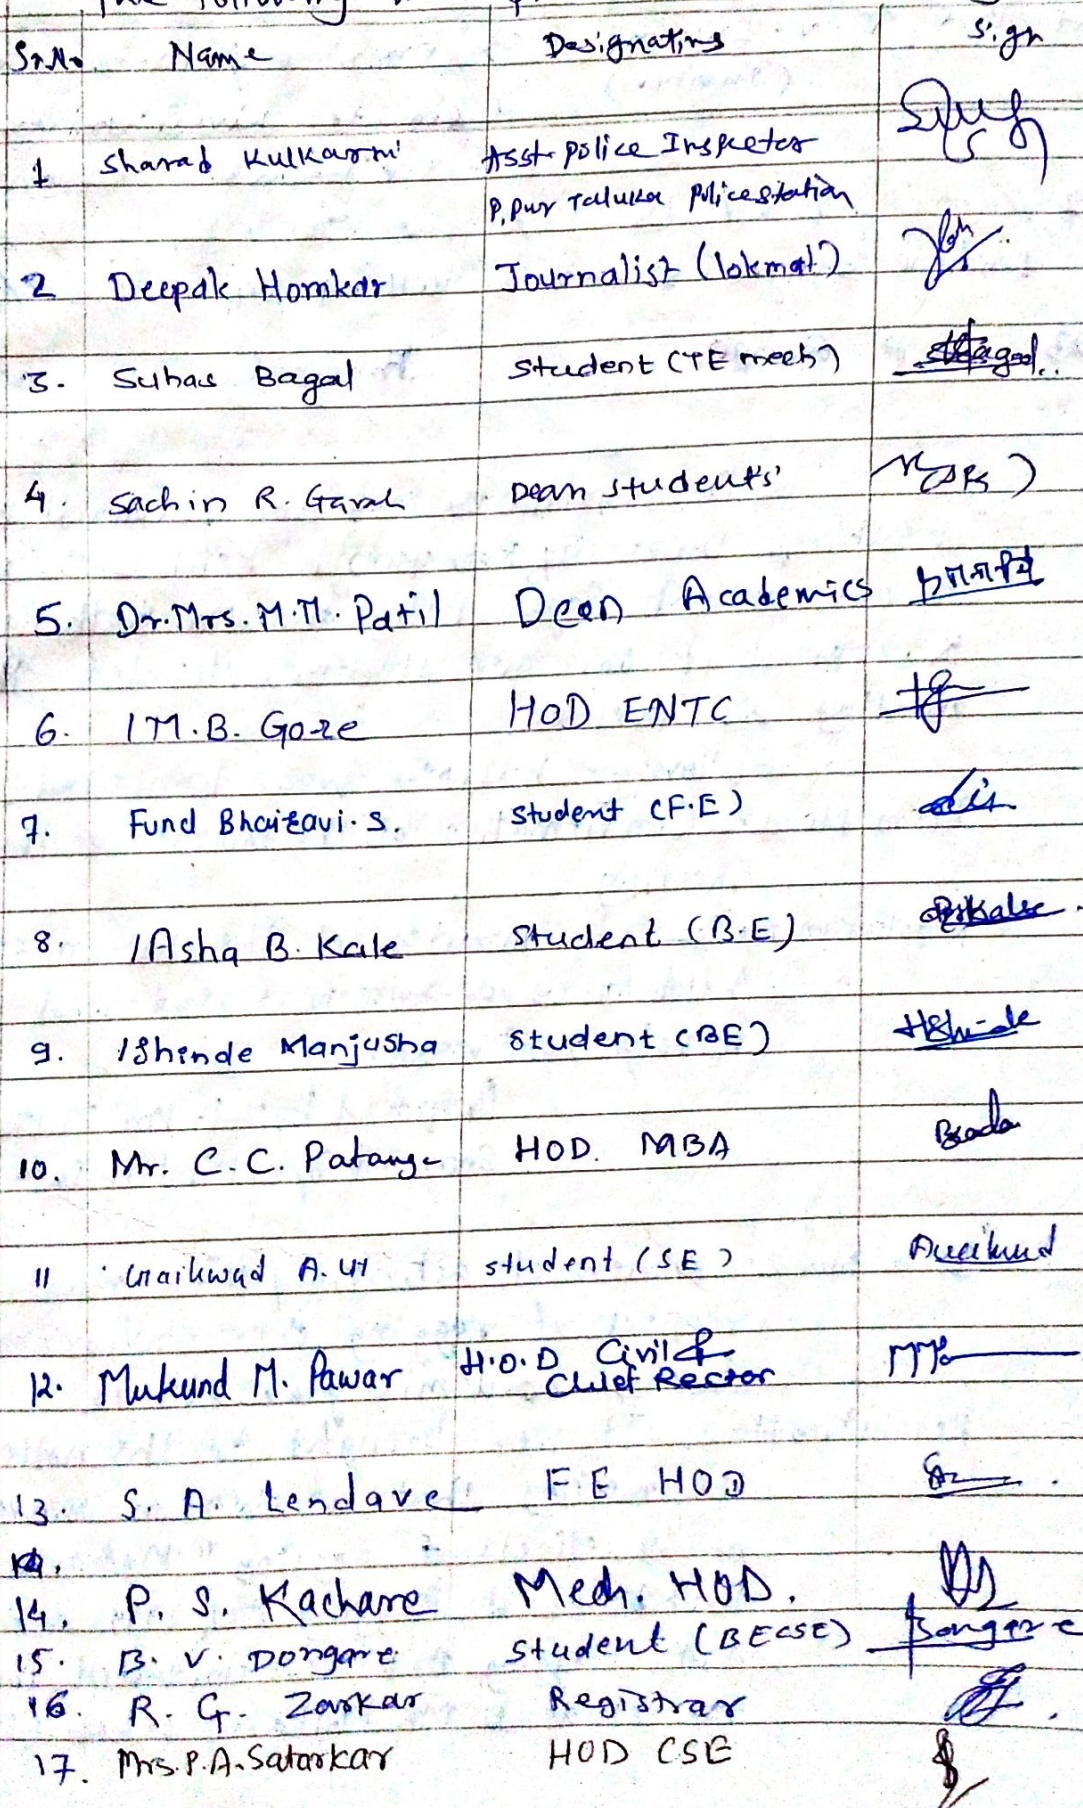 The following
Sr.No. Name Designations Sign
1 Sharad Kulkarni Asst. Police Inspector
P.pur Taluka Police station
2 Deepak Homkar Journalist (lokmat)
3. Suhas Bagal Student (TE mech) Bagal..
4. Sachin R. Gavali Dean students'
5. Dr. Mrs. M.M. Patil Dean Academics
6. M.B. Gore HOD ENTC
7. Fund Bhairavi. S. Student (F.E)
8. Asha B. Kale Student (B.E) Kale
9. Shinde Manjusha Student (BE) Shinde
10. Mr. C.C. Patange HOD. MBA
11 Gaikwad A. student (SE)
12. Mukund M. Pawar H.O.D Civil &
Chief Rector
13. S. A. Lendave F.E HOD
14. P. S. Kachare Mech. HOD.
15. B. V. Dongare Student (BECSE) Dongare
16. R. G. Zarkar Registrar
17. Mrs. P.A. Satarkar HOD CSE